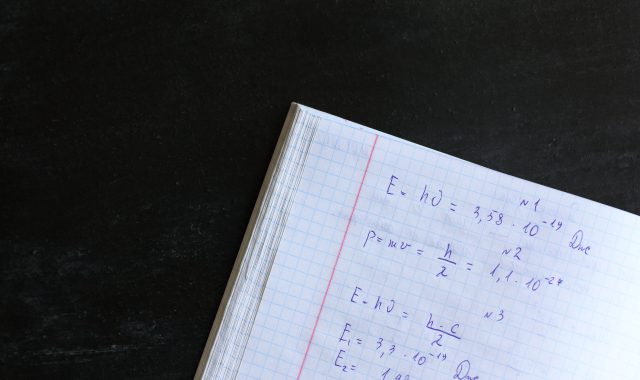 №1
E = hν = 3,58 · 10⁻¹⁹ Дж
№2
p = mv = h/λ = 1,1 · 10⁻²⁷
№3
E = hν = h·c/λ
E₁ = 3,3 · 10⁻¹⁹ Дж
E₂ =